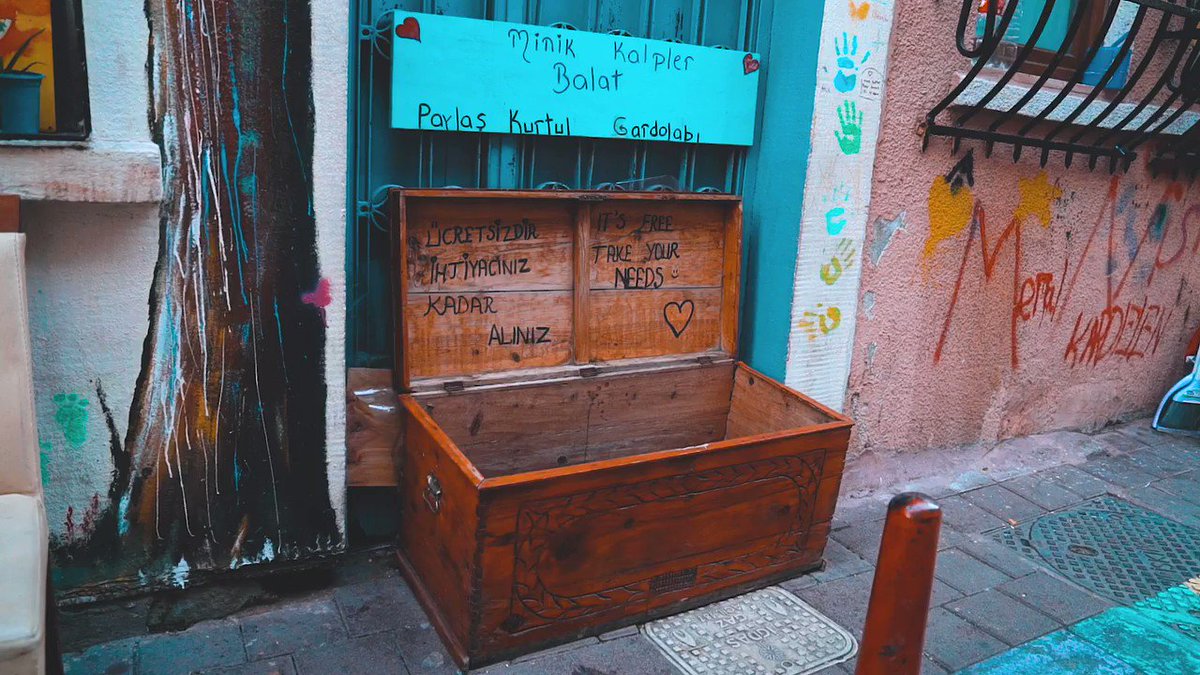 Minik Kalpler
Balat
Paylaş Kurtul Gardolabı
ÜCRETSİZDİR
İHTİYACINIZ
KADAR
ALINIZ
IT'S FREE
TAKE YOUR
NEEDS
Meral
KARDELEN
GAZ